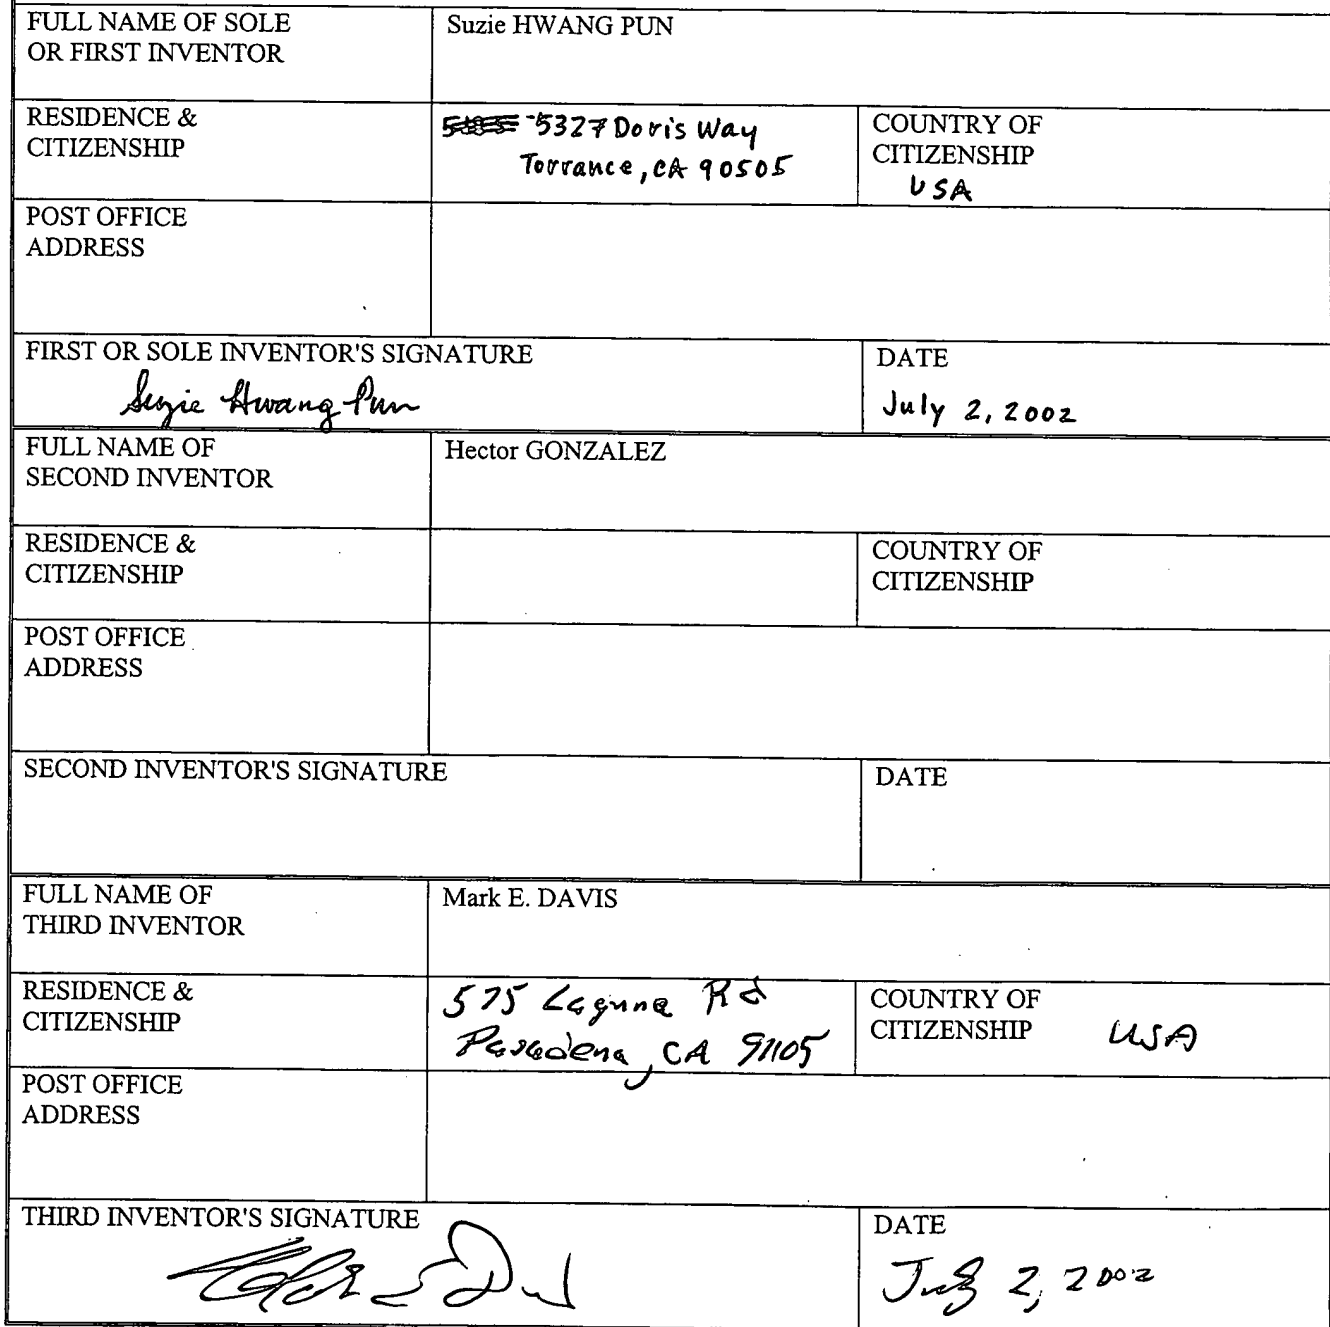 FULL NAME OF SOLE
OR FIRST INVENTOR
Suzie HWANG PUN
RESIDENCE &
CITIZENSHIP
5327 Doris Way
Torrance, CA 90505
COUNTRY OF
CITIZENSHIP
USA
POST OFFICE
ADDRESS
FIRST OR SOLE INVENTOR'S SIGNATURE
Suzie Hwang Pun
DATE
July 2, 2002
FULL NAME OF
SECOND INVENTOR
Hector GONZALEZ
RESIDENCE &
CITIZENSHIP
COUNTRY OF
CITIZENSHIP
POST OFFICE
ADDRESS
SECOND INVENTOR'S SIGNATURE
DATE
FULL NAME OF
THIRD INVENTOR
Mark E. DAVIS
RESIDENCE &
CITIZENSHIP
575 Laguna Rd
Pasadena, CA 91105
COUNTRY OF
CITIZENSHIP
USA
POST OFFICE
ADDRESS
THIRD INVENTOR'S SIGNATURE
DATE
July 2, 2002